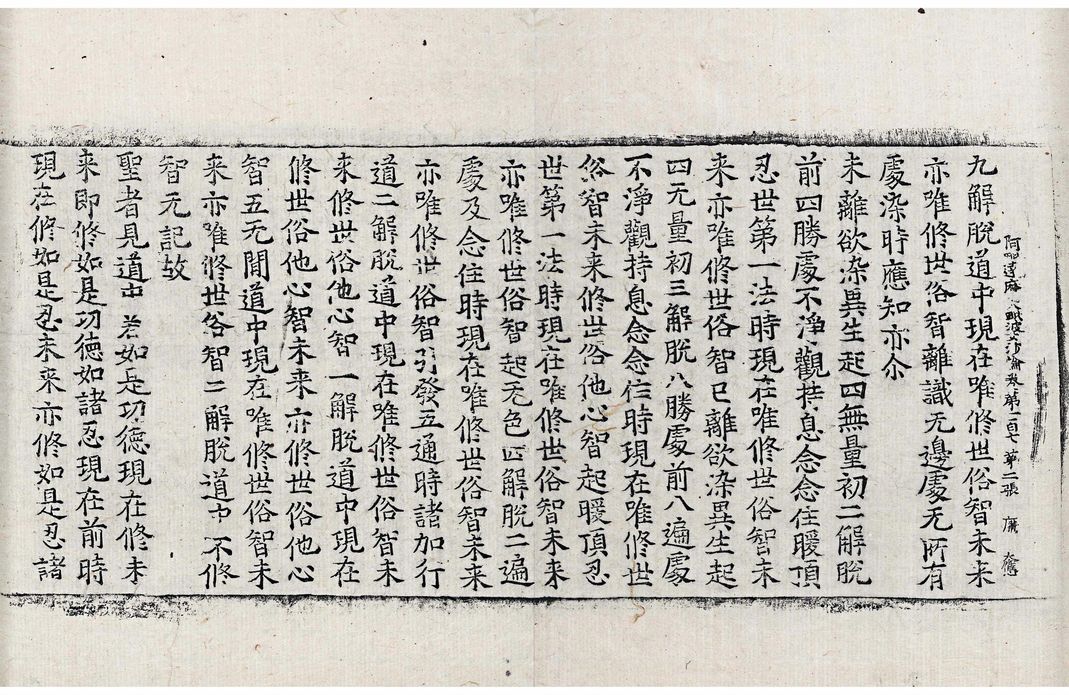 阿毗達磨大毗婆沙論卷第一百七 第二張 廉
九解脫道中現在唯修世俗智未来
亦唯修世俗智離識无邊處无所有
處染時應知亦尒
未離欲染異生起四無量初二解脫
前四勝處不淨觀持息念念住暖頂
忍世第一法時現在唯修世俗智未
来亦唯修世俗智已離欲染異生起
四无量初三解脫八勝處前八遍處
不淨觀持息念念住時現在唯修世
俗智未来修世俗他心智起暖頂忍
世第一法時現在唯修世俗智未来
亦唯修世俗智起无色四解脫二遍
處及念住時現在唯修世俗智未来
亦唯修世俗智引發五通時諸加行
道二解脫道中現在唯修世俗智未
来修世俗他心智一解脫道中現在
修世俗他心智未来亦修世俗他心
智五无間道中現在唯修世俗智未
来亦唯修世俗智二解脫道中不修
智无記故
聖者見道中若如是功德現在修未
来即修如是功德如諸忍現在前時
現在修如是忍未来亦修如是忍諸